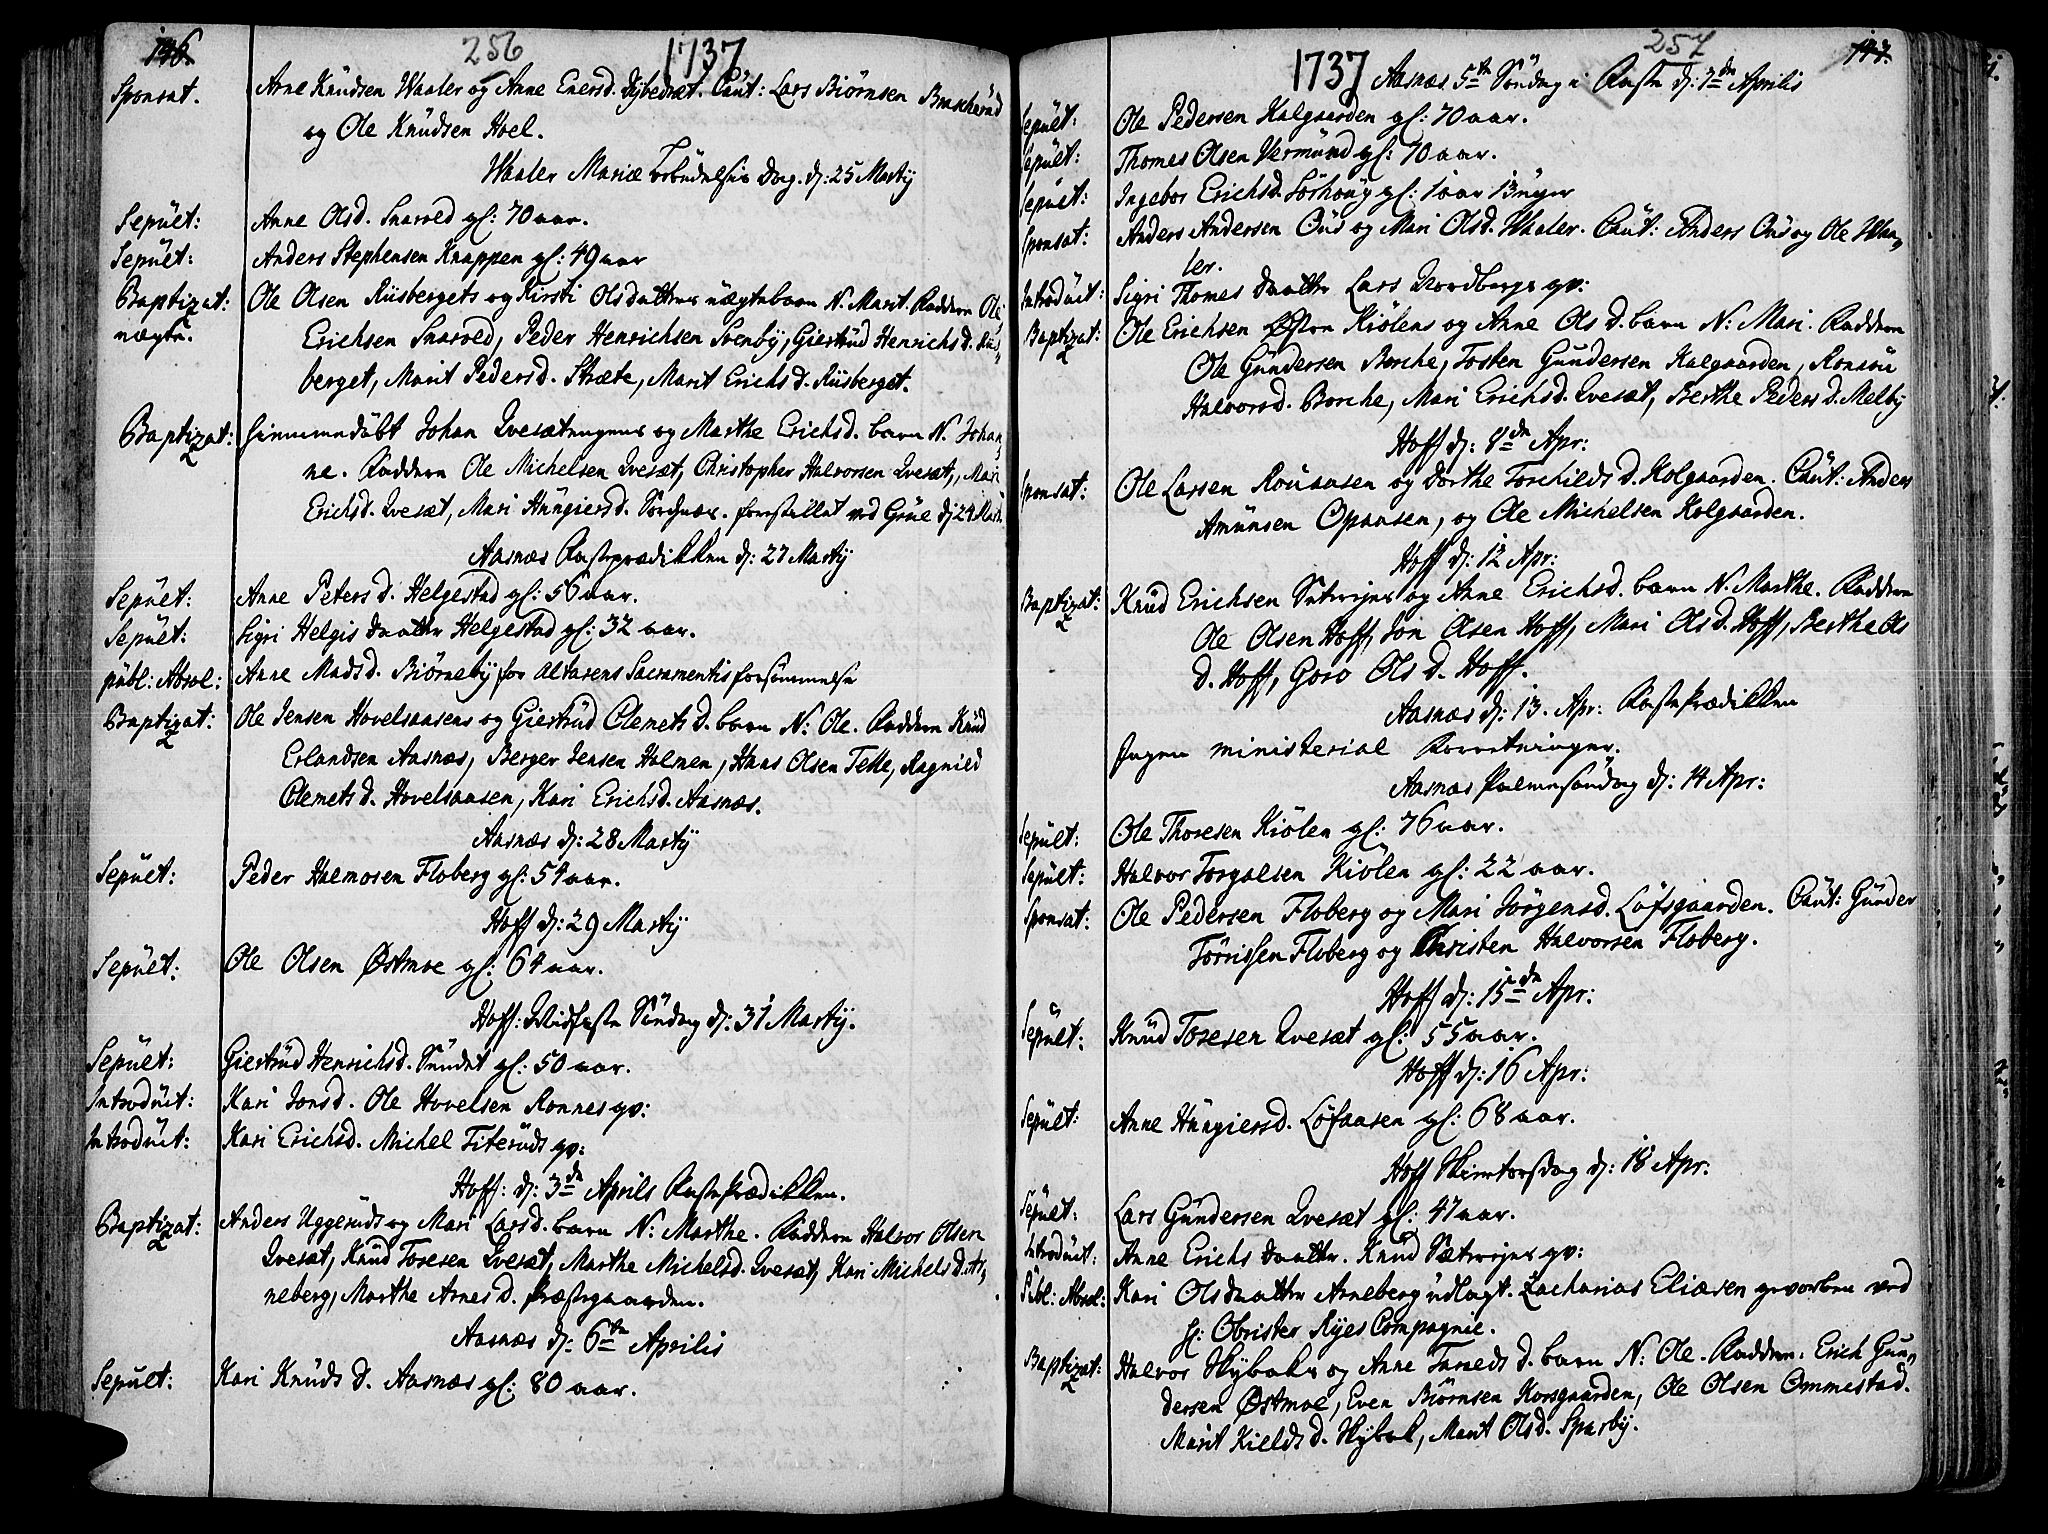 146.
256
1737
Sponsat. Arne Knüdsen Waaler og Anne Enersd. Caut: Lars Biørnsen
og Ole Knüdsen Hoel.
Waaler Mariæ Bebudelsis Dag. d: 25 Martij
Sepult: Anne Olsd. Snarved gl: 70 aar.
Sepult: Anders Stephensen Knappen gl: 49 aar
Baptizat: Ole Olsen Riisbergets og Kirsti Olsdatters uægte barn N. Marit. Fadderne Ole
uægte. Erichsen Snarved, Peder Henrichsen Svenby, Giertrüd Henrichsd. Riis„
berget, Marit Pedersd. Stræte, Marit Erichsd. Riisberget.
Baptizat: hiemmedøbt Johan Qvesætengens og Marthe Erichsd. barn N. Johan„
ne. Fadderne Ole Michelsen Qvesæt, Christopher Halvorsen Qvesæt, Mari
Erichsd. Qvesæt, Mari Hüngiersd. forstillet ved Grue d: 24 Mart.
Aasnæs Fasteprædikken d: 27 Martij
Sepult: Anne Petersd. Helgestad gl: 56 aar.
Sepult: Sigri Helgis daatter Helgestad gl: 32 aar.
publ: Absol: Anne Madsd. Biørneby for Altarens Sacramentis forsømmelse
Baptizat: Ole Jensen Hovelsaasens og Giertrüd Clemetsd. barn N: Ole. Fadderne Knüd
Erlandsen Aasnæs, Berger Jensen Holmen, Hans Olsen Telle, Ragnild
Clemetsd. Hovelsaasen, Kari Erichsd. Aasnæs.
Aasnæs d: 28 Martij
Sepult: Peder Halmosen Floberg gl: 54 aar.
Hoff d: 29 Martij
Sepult: Ole Olsen Østmoe gl: 64 aar.
Hoff: Midfaste Søndag d: 31 Martij.
Sepult: Giertrüd Henrichsd. Sündet gl: 50 aar.
Introduct: Kari Jonsd. Ole Hovelsen Rønnes qv:
Introduct: Kari Erichsd. Michel Titerüds qv:
Hoff: d: 3de Aprilis Fasteprædikken.
Baptizat: Anders Uggerüds og Mari Larsd. barn N: Marthe. Fadderne Halvor Olsen
Qvesæt, Knüd Toresen Qvesæt, Marthe Michelsd. Qvesæt, Kari Michelsd. Ar„
neberg, Marthe Arnesd. Præstegaarden.
Aasnæs d: 6te Aprilis
Sepult: Kari Knüdsd. Aasnæs gl: 80 aar.
257
147.
1737
Aasnæs 5te Søndag i Faste d: 7de Aprilis
Sepult: Ole Pedersen Kalgaarden gl: 70 aar.
Sepult: Thomes Olsen Vermünd gl: 70 aar.
Sepult: Ingebor Erichsd. Sørhoug gl: 1 aar 13 uger
Sponsat: Anders Andersen Oüs og Mari Olsd. Waaler. Caut: Anders Oüs og Ole Waa„
ler.
Introduct: Sigri Thomes daatter Lars Nordbergs qv:
Baptizat: Ole Erichsen Østre Kiølens og Anne Olsd. barn N: Mari. Fadderne
Ole Gündersen Borche, Tosten Gundersen Kalgaarden, Ronnou
Halvorsd. Borche, Mari Erichsd. Qvesæt, Berthe Pedersd. Melby
Hoff d: 8de Apr:
Sponsat: Ole Larsen Rouaasen og Dorthe Torchildsd. Kolgaarden. Caut: Anders
Amünsen Opaasen, og Ole Michelsen Kolgaarden.
Hoff d: 12 Apr:
Baptizat: Knüd Erichsen Sætrejes og Anne Erichsd. barn N: Marthe. Fadderne
Ole Olsen Hoff, Jon Olsen Hoff, Mari Olsd. Hoff, Berthe Ols
d. Hoff, Goro Olsd. Hoff.
Aasnæs d: 13. Apr: Fasteprædikken
Ingen ministerial Forretninger.
Aasnæs Palmesøndag d: 14 Apr:
Sepult: Ole Thoresen Kiølen gl: 76 aar.
Sepult: Halvor Torgalsen Kiølen gl: 22 aar.
Sponsat: Ole Pedersen Floberg og Mari Jørgensd. Løfsgaarden. Caut: Günder
Tørrissen Floberg og Christen Halvorsen Floberg.
Hoff d: 15de Apr:
Sepult: Knüd Toreser Qvesæt gl: 55 aar.
Hoff d: 16 Apr:
Sepult: Anne Hüngiersd. Løfaasen gl: 68 aar.
Hoff Skiertorsdag d: 18 Apr:
Sepult: Lars Gündersen Qvesæt gl: 47 aar.
Introduct: Anne Erichs daatter. Knüd Sætrejes qv:
Publ: Absol: Kari Olsdaatter Arneberg udlagt. Zacharias Eliæsen gevorben ved
H: Obrister Ryes Compagnie.
Baptizat: Halvor Skybaks og Anne Taraldsd. barn N: Ole. Fadderne. Erich Gun„
dersen Østmoe, Even Biørnsen Korsgaarden, Ole Olsen Ommestad.
Marit Kieldsd. Skybak, Marit Olsd. Sparby.